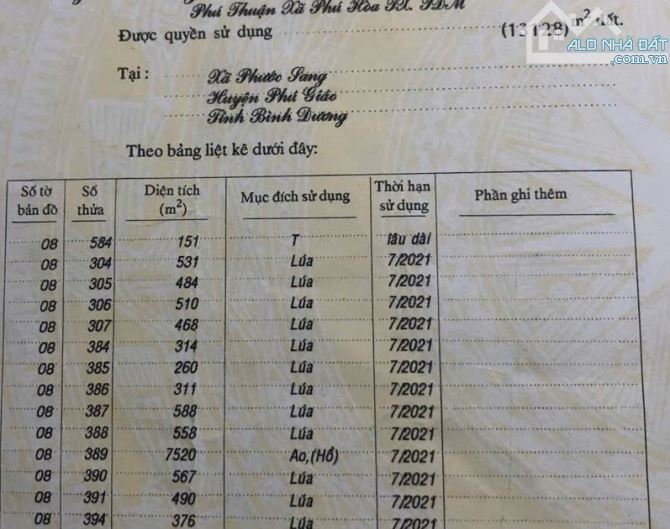 Phú Thuận Xã Phú Hòa TX. TDM
Được quyền sử dụng (13128) m² đất.
ALO NHÀ ĐẤT
.com.vn
Tại : Xã Phước Sang
Huyện Phú Giáo
Tỉnh Bình Dương
Theo bảng liệt kê dưới đây:
Số tờ bản đồ Số thửa Diện tích (m²) Mục đích sử dụng Thời hạn sử dụng Phần ghi thêm
08 584 151 T lâu dài
08 304 531 Lúa 7/2021
08 305 484 Lúa 7/2021
08 306 510 Lúa 7/2021
08 307 468 Lúa 7/2021
08 384 314 Lúa 7/2021
08 385 260 Lúa 7/2021
08 386 311 Lúa 7/2021
08 387 588 Lúa 7/2021
08 388 558 Lúa 7/2021
08 389 7520 Ao,(Hồ) 7/2021
08 390 567 Lúa 7/2021
08 391 490 Lúa 7/2021
08 394 376 Lúa 7/2021